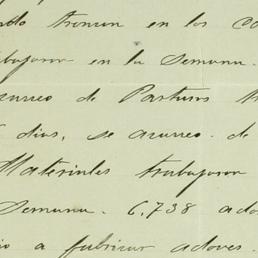 do truncan en los ca
trabajaron en la Semana.
carreo de Pasturas tr
dias, se acarreo. de
Materiales trabajaron
Semana. 6,738 ado
io a fabricar adoves.